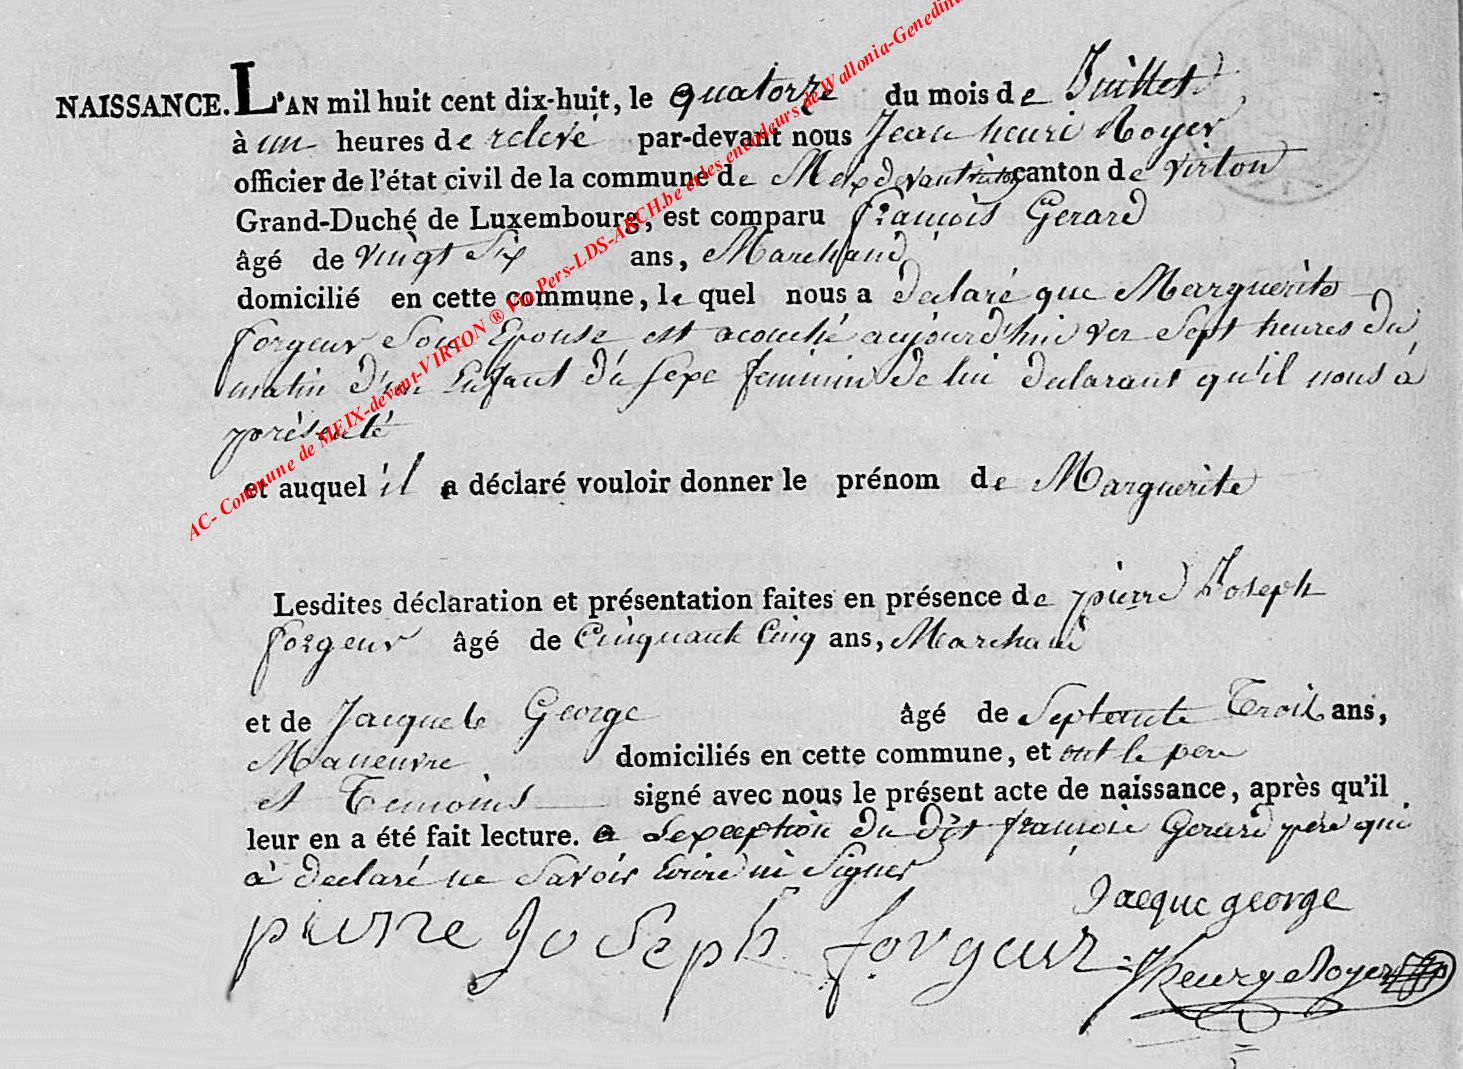 NAISSANCE. L'AN mil huit cent dix-huit, le quatorze du mois de Juillet
à un heures de relevé par-devant nous Jean henri Royer
officier de l'état civil de la commune de Meix devant virton canton de virton
Grand-Duché de Luxembourg, est comparu françois Gerard
âgé de vingt Six ans, Marchand
domicilié en cette commune, le quel nous a declaré que Marguerite
forgeur Son Epouse est acouché aujourd'hui ver Sept heures du
matin d'un Enfant du Sexe feminin de lui declarant qu'il nous à
présenté
et auquel il a déclaré vouloir donner le prénom de Marguerite
Lesdites déclaration et présentation faites en présence de pierre Joseph
forgeur âgé de Cinquante Cinq ans, Marchand
et de Jacque le George âgé de Septante Trois ans,
Maneuvre domiciliés en cette commune, et ont le pere
et Temoins signé avec nous le présent acte de naissance, après qu'il
leur en a été fait lecture. a Lexception du dit françois Gerard pere qui
à declaré ne Savoir Ecrire ni Signer
Jacque george
pierre Joseph forgeur
JhenryRoyer
AC- Commune de MEIX-devant-VIRTON ® Via Pers-LDS-ARCH.be et les encodeurs de Wallonia-Genedina